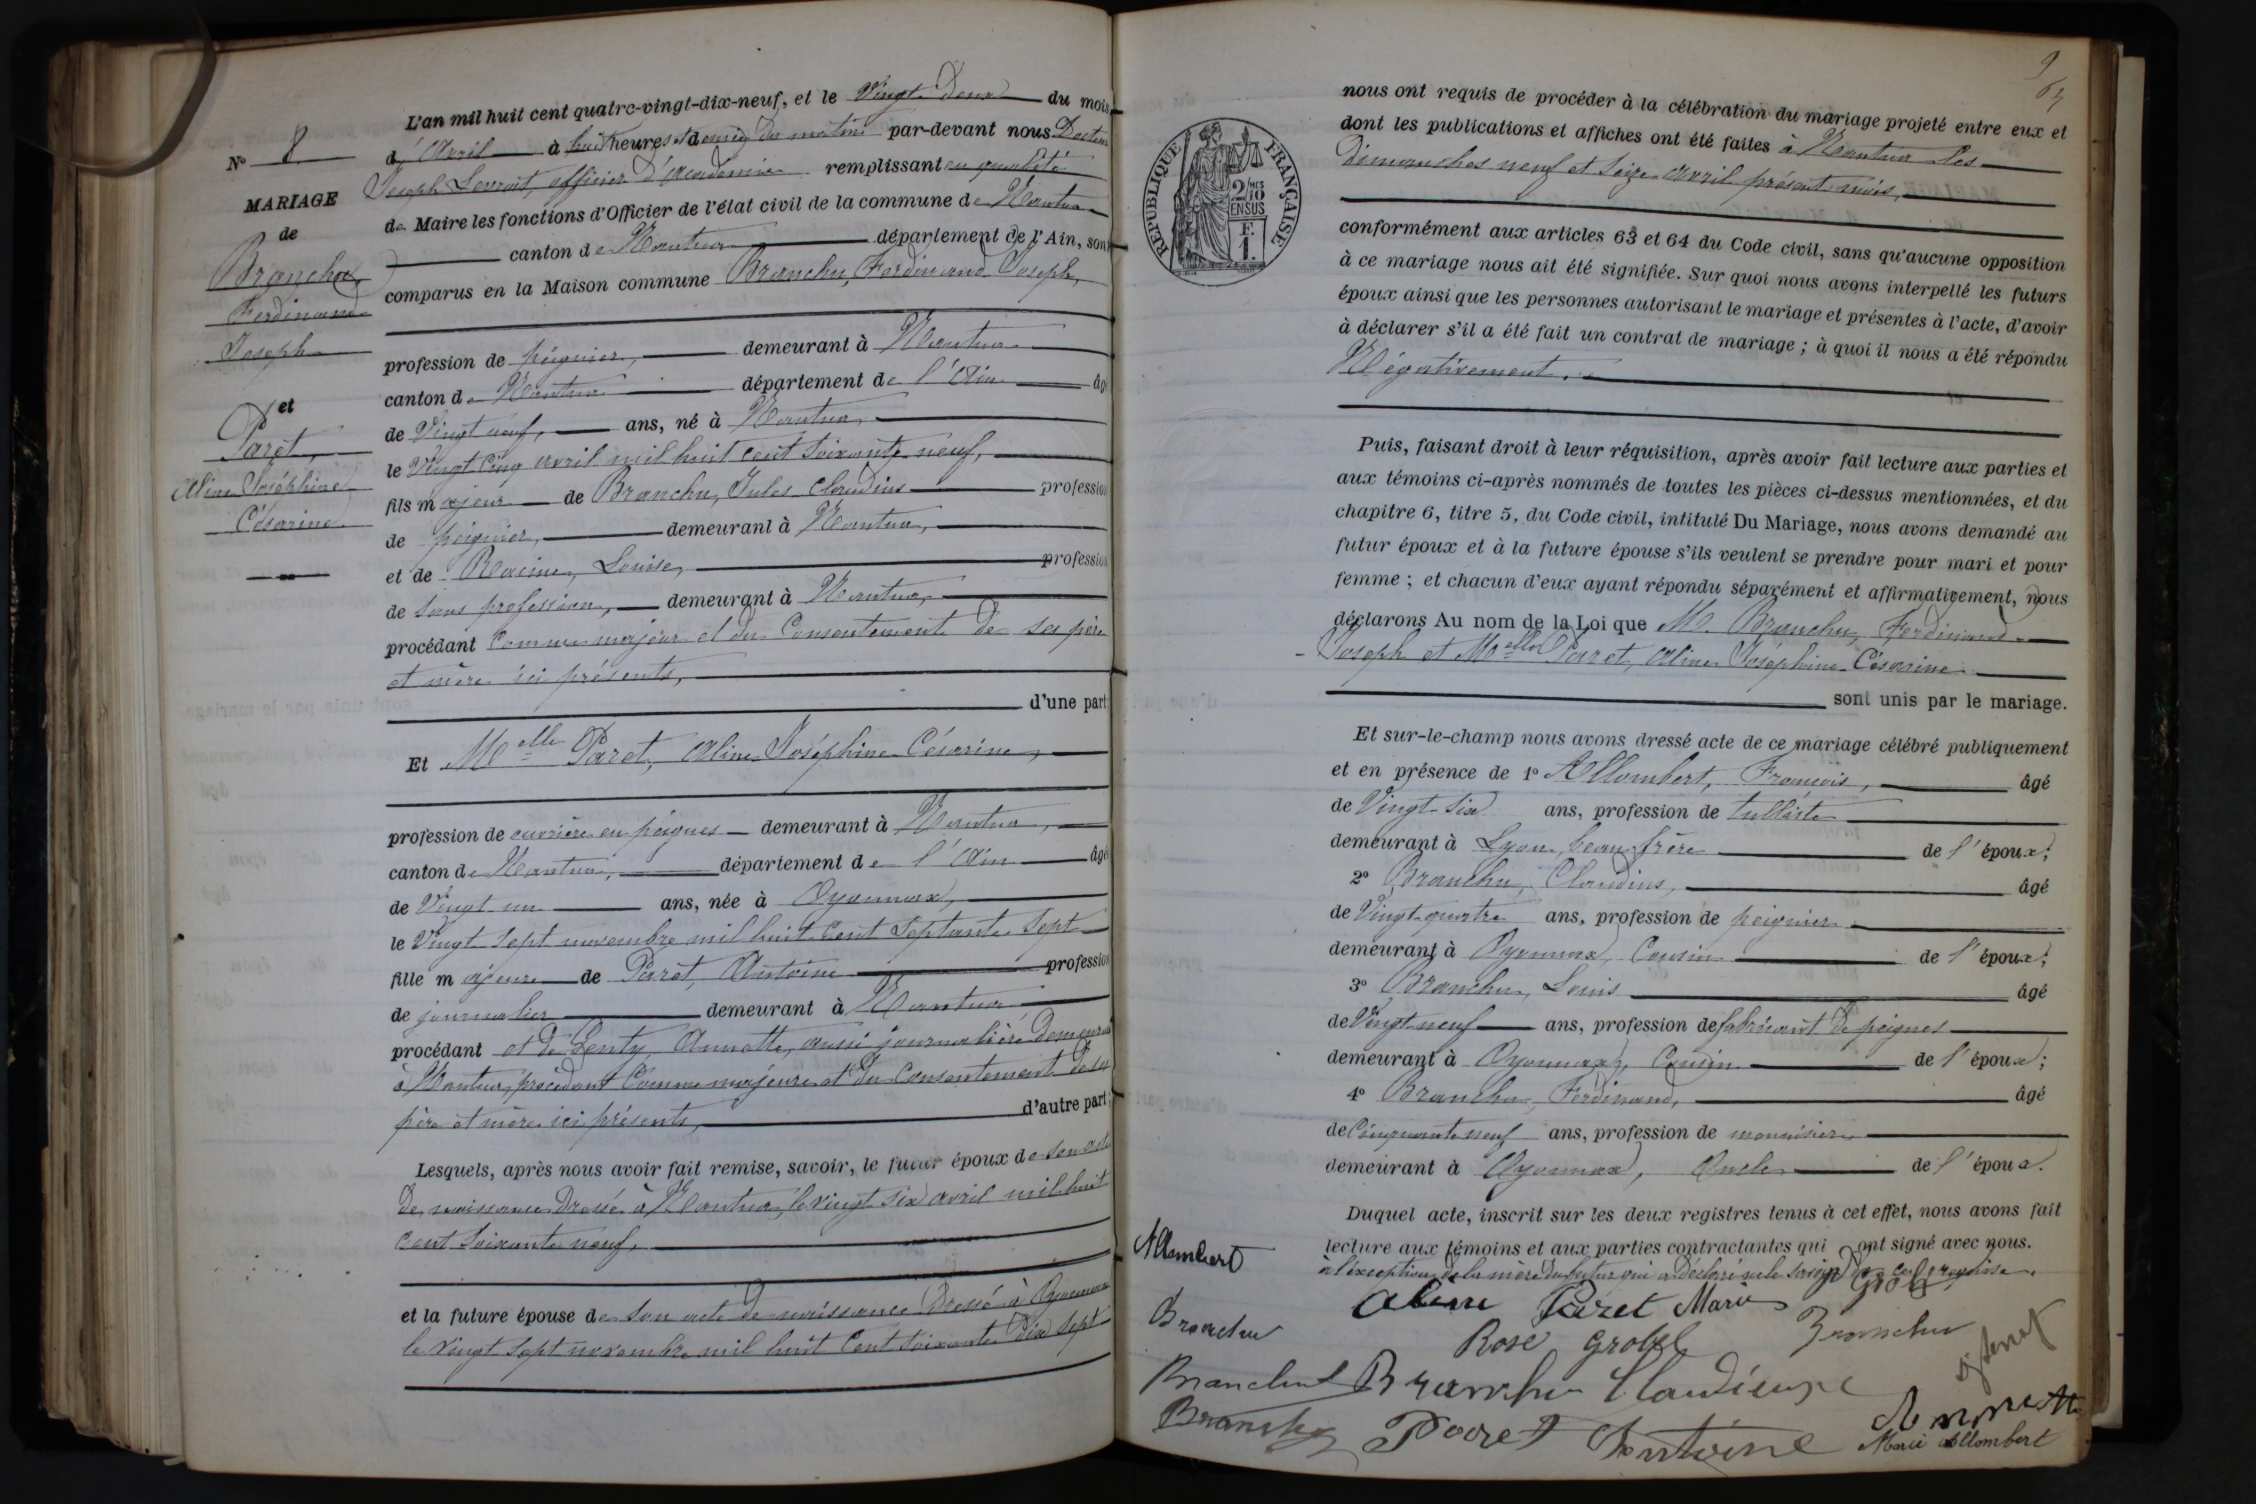 N° 8
MARIAGE
de
Branchu,
Ferdinand
Joseph
et
Paret,
Aline Joséphine
Césarine
L'an mil huit cent quatre-vingt-dix-neuf, et le Vingt Deux du mois
d'Avril à huit heures & demie du matin par-devant nous Docteur
Joseph officier d'Académie remplissant en qualité
de Maire les fonctions d'Officier de l'état civil de la commune de Nantua
canton de Nantua département de l'Ain, sont
comparus en la Maison commune Branchu, Ferdinand Joseph,
profession de peignier, demeurant à Nantua
canton de Nantua département de l'Ain âgé
de Vingt neuf, ans, né à Nantua,
le Vingt Cinq avril mil huit cent soixante neuf,
fils majeur de Branchu, Jules Claudius profession
de peignier, demeurant à Nantua,
et de Racine, Louise, profession
de sans profession, demeurant à Nantua,
procédant comme majeur et du consentement de ses père
et mère ici présents,
d'une part;
Et Melle Paret, Aline Joséphine Césarine,
profession de ouvrière en peignes demeurant à Nantua,
canton de Nantua, département de l'Ain âgée
de Vingt un ans, née à Oyonnax,
le Vingt sept novembre mil huit cent septante sept
fille majeure de Paret, Antoine profession
de journalier demeurant à Nantua
procédant et de Lenty, Annette, aussi journalière demeurant
à Nantua, procédant comme majeure et du consentement de ses
père et mère ici présents, d'autre part;
Lesquels, après nous avoir fait remise, savoir, le futur époux de son acte
de naissance dressé à Nantua, le vingt six avril mil huit
cent soixante neuf,
et la future épouse de son acte de naissance dressé à Oyonnax
le vingt sept novembre mil huit cent soixante dix sept
9
RÉPUBLIQUE FRANÇAISE
2/10MES
EN SUS
F.
1.
nous ont requis de procéder à la célébration du mariage projeté entre eux et
dont les publications et affiches ont été faites à Nantua les
dimanches neuf et seize avril présent mois,
conformément aux articles 63 et 64 du Code civil, sans qu'aucune opposition
à ce mariage nous ait été signifiée. Sur quoi nous avons interpellé les futurs
époux ainsi que les personnes autorisant le mariage et présentes à l'acte, d'avoir
à déclarer s'il a été fait un contrat de mariage ; à quoi il nous a été répondu
Négativement.
Puis, faisant droit à leur réquisition, après avoir fait lecture aux parties et
aux témoins ci-après nommés de toutes les pièces ci-dessus mentionnées, et du
chapitre 6, titre 5, du Code civil, intitulé Du Mariage, nous avons demandé au
futur époux et à la future épouse s'ils veulent se prendre pour mari et pour
femme ; et chacun d'eux ayant répondu séparément et affirmativement, nous
déclarons Au nom de la Loi que M. Branchu, Ferdinand
Joseph et Melle Paret, Aline Joséphine Césarine
sont unis par le mariage.
Et sur-le-champ nous avons dressé acte de ce mariage célébré publiquement
et en présence de 1° Allombert, François, âgé
de Vingt six ans, profession de tulliste
demeurant à Lyon, beau frère de l'époux;
2° Branchu, Claudius, âgé
de Vingt quatre ans, profession de peignier
demeurant à Oyonnax, Cousin de l'époux;
3° Branchu, Louis âgé
de Vingt neuf ans, profession de fabricant de peignes
demeurant à Oyonnax, Cousin de l'époux;
4° Branchu, Ferdinand, âgé
de Cinquante neuf ans, profession de menuisier
demeurant à Oyonnax, Oncle de l'époux.
Duquel acte, inscrit sur les deux registres tenus à cet effet, nous avons fait
lecture aux témoins et aux parties contractantes qui ont signé avec nous.
à l'exception de la mère du futur qui a déclaré ne le savoir de ce requise.
Allombert
Aline Paret Marie Grobel
Branchu
Rose Grobel Branchu
Branchu Branchu Claudius
Branchu Paret Antoine Annette
Marie Allombert